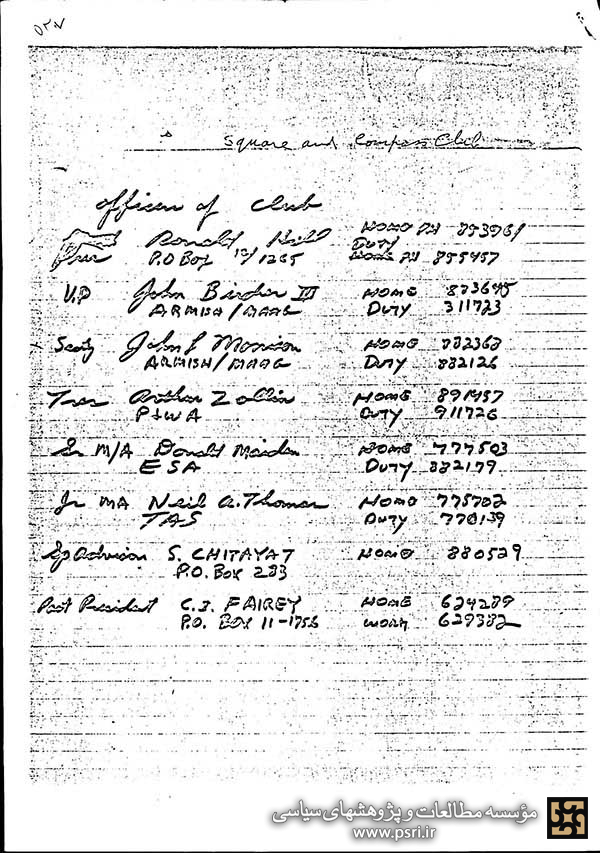 ۵۲۷
Square and Compass Club
Officers of Club
Pres Ronald Hill Home PH 853961
P.O Box 12/1265 Duty 855457
V.P John Birder III Home 873645
ARMISH/MAAG Duty 311723
Secty John L Morrison Home 882368
ARMISH/MAAG Duty 882126
Tres Arthur Zollin Home 891457
P+WA Duty 911726
Sr M/A Donald Maiden Home 777503
ESA Duty 882179
Jr MA Neil A. Thomas Home 775702
TAS Duty 770139
Sp Advisor S. CHITAYAT Home 880529
P.O. Box 283
Past President C.J. FAIREY Home 624289
P.O. Box 11-1756 Work 629382
مؤسسه مطالعات و پژوهشهای سیاسی
www.psri.ir